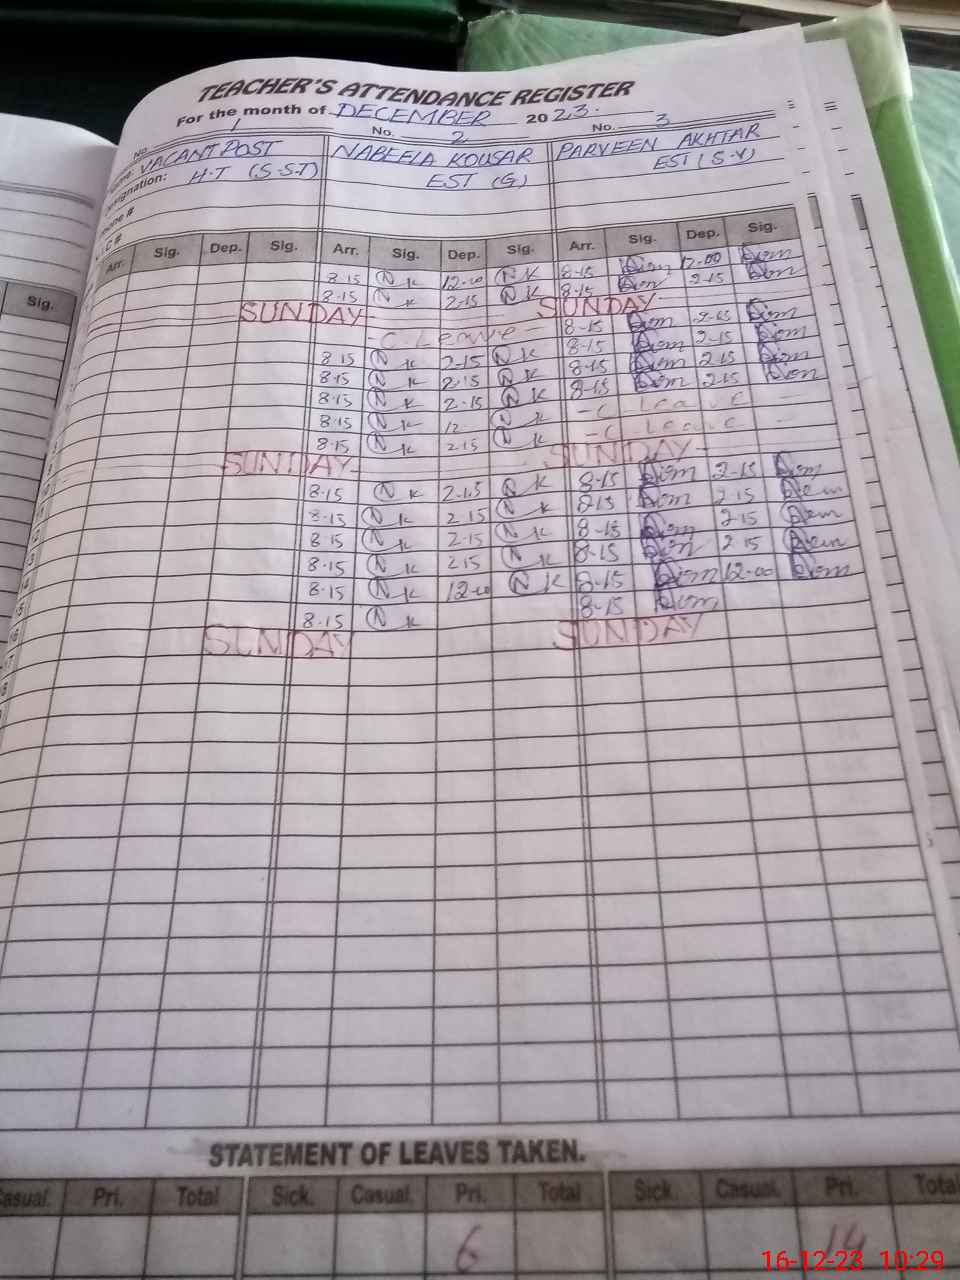 TEACHER'S ATTENDANCE REGISTER
For the month of DECEMBER 2023.
No. 1 No. 2 No. 3
VACANT POST NABEELA KOUSAR PARVEEN AKHTAR
H.T (S.S.T) EST (G) EST (S.V)
Arr. Sig. Dep. Sig. Arr. Sig. Dep. Sig. Arr. Sig. Dep. Sig.
Sig.
8.15 N K 12-00 N K 8-15 12-00
8.15 N K 2-15 N K 8-15 2-15
SUNDAY SUNDAY
- C. Leave - 8-15 2-15
8.15 N K 2-15 N K 8-15 2-15
8.15 N K 2.15 N K 8-15 2-15
8.15 N K 2-15 N K 8-15 2-15
8.15 N K 12 N K - C - Leave -
8.15 N K 2.15 N K - C - Leave -
SUNDAY SUNDAY
8.15 N K 2-15 N K 8-15 2-15
8.15 N K 2.15 N K 2.15
8.15 N K 2-15 N K 8-15 2-15
8.15 N K 2.15 N K 8-15 2-15
8.15 N K 12-00 N K 8-15 12-00
8.15 N K 8-15
SUNDAY SUNDAY
STATEMENT OF LEAVES TAKEN.
Casual. Pri. Total Sick. Casual. Pri. Total Sick. Casual. Pri. Total
6 14
16-12-23 10:29